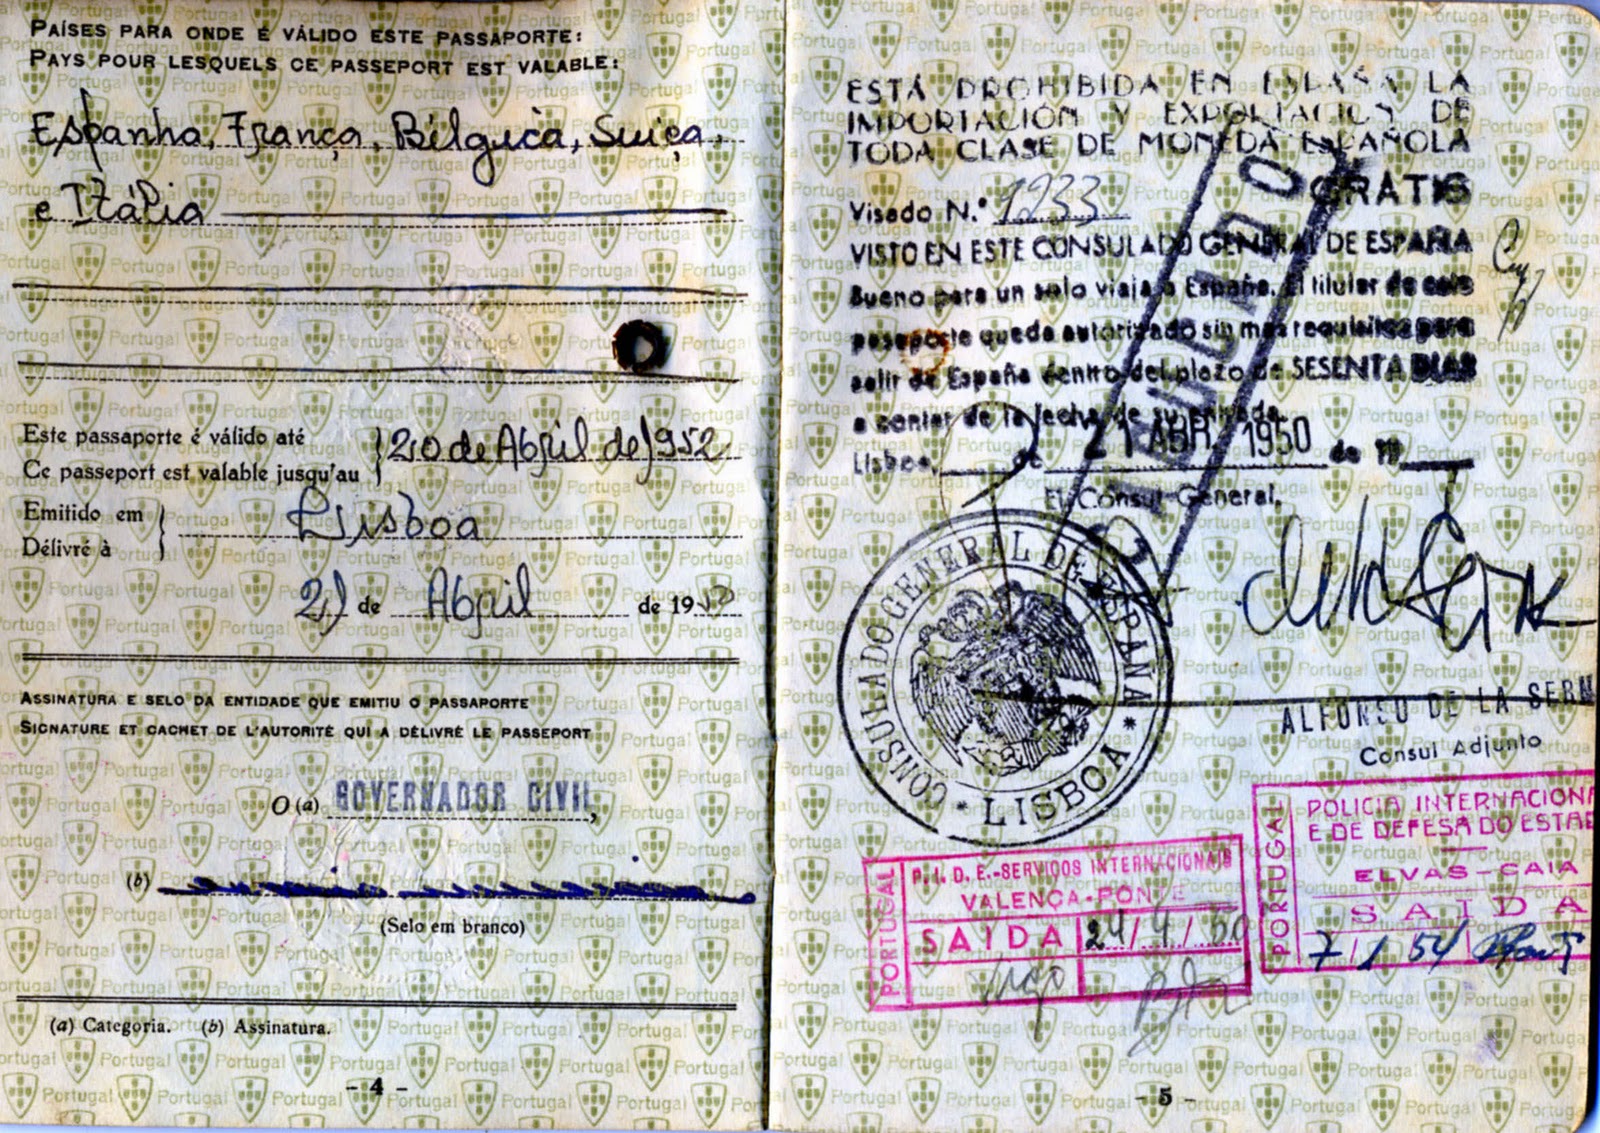 PAÍSES PARA ONDE É VÁLIDO ESTE PASSAPORTE:
PAYS POUR LESQUELS CE PASSEPORT EST VALABLE:
Espanha, França, Bélgica, Suiça,
e Itália
Este passaporte é válido até
Ce passeport est valable jusqu'au
20 de Abril de 1952
Emitido em
Délivré à
Lisboa
21 de Abril de 1950
ASSINATURA E SELO DA ENTIDADE QUE EMITIU O PASSAPORTE
SIGNATURE ET CACHET DE L'AUTORITÉ QUI A DÉLIVRÉ LE PASSEPORT
O (a) GOVERNADOR CIVIL,
(b)
(Selo em branco)
(a) Categoria. (b) Assinatura.
- 4 -
ESTÁ PROHIBIDA EN ESPAÑA LA
IMPORTACIÓN Y EXPORTACION DE
TODA CLASE DE MONEDA ESPAÑOLA
GRATIS
Visado N.º 1233
VISTO EN ESTE CONSULADO GENERAL DE ESPAÑA
Bueno para un solo viaje a España. El titular de este
pasaporte queda autorizado sin mas requisitos para
salir de España dentro del plazo de SESENTA DIAS
a contar de la fecha de su entrada.
Lisboa, de 21 ABR. 1950 de 19
El Consul General,
CONSULADO GENERAL DE ESPAÑA
* LISBOA *
ALFONSO DE LA SERN
Consul Adjunto
PORTUGAL
P. I. D. E.-SERVIÇOS INTERNACIONAIS
VALENÇA-PONTE
SAIDA 24/4/50
PORTUGAL
POLICIA INTERNACIONA
E DE DEFESA DO ESTAD
ELVAS-CAIA
SAIDA
7/1/54
- 5 -